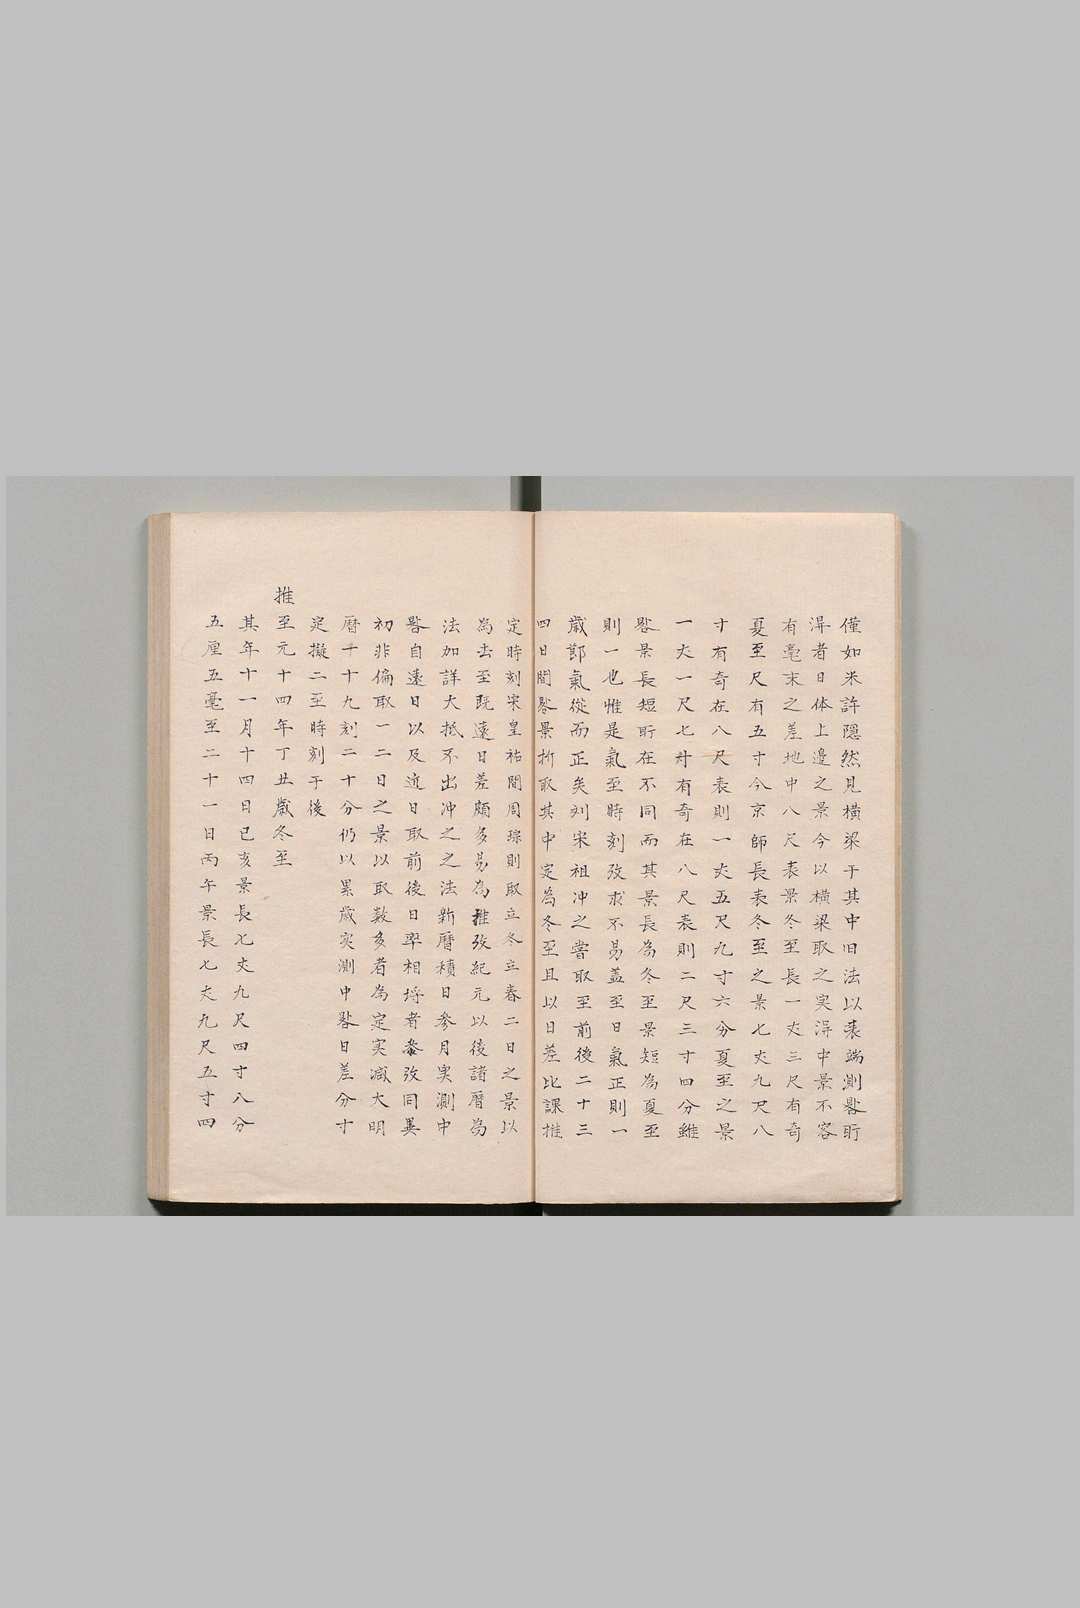 僅如米許隱然見橫梁于其中旧法以表端測晷所
淂者日体上邊之景今以橫梁取之実淂中景不容
有毫末之差地中八尺表景冬至長一丈三尺有奇
夏至尺有五寸今京師長表冬至之景七丈九尺八
寸有奇在八尺表則一丈五尺九寸六分夏至之景
一丈一尺七寸有奇在八尺表則二尺三寸四分雖
晷景長短所在不同而其景長為冬至景短為夏至
則一也惟是氣至時刻攷求不易盖至日氣正則一
歲節氣從而正矣刘宋祖冲之嘗取至前後二十三
四日間晷景折取其中定為冬至且以日差比課推
定時刻宋皇祐間周琮則取立冬立春二日之景以
為去至既遠日差頗多易為推攷紀元以後諸曆為
法加詳大抵不出冲之之法新曆積日参月実測中
晷自遠日以及近日取前後日率相埒者叅攷同異
初非偏取一二日之景以取数多者為定実减大明
曆十九刻二十分仍以累歲实測中晷日差分寸
定擬二至時刻于後
推至元十四年丁丑歲冬至
其年十一月十四日己亥景長七丈九尺四寸八分
五厘五毫至二十一日丙午景長七丈九尺五寸四